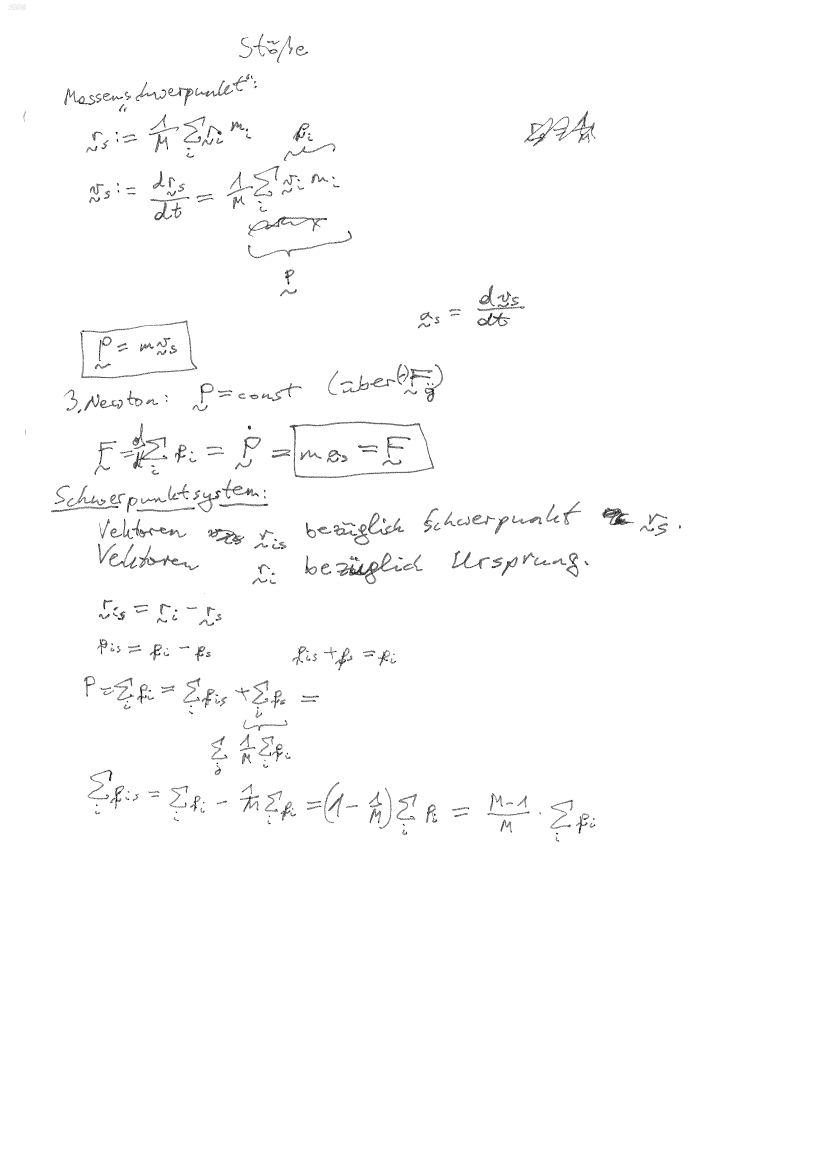 Stöße
Massenschwerpunkt":
r_s := 1/M Σ_i r_i m_i
p_i
v_s := dr_s/dt = 1/M Σ_i v_i m_i
P
a_s = dv_s/dt
P = m v_s
3. Newton: P = const (über F_ij)
F = d/dt Σ_i p_i = Ṗ = m a_s = F
Schwerpunktsystem:
Vektoren r_is bezüglich Schwerpunkt r_s.
Vektoren r_i bezüglich Ursprung.
r_is = r_i - r_s
p_is = p_i - p_s p_is + p_s = p_i
P = Σ_i p_i = Σ_i p_is + Σ_i p_s =
Σ 1/M Σ_i p_i
Σ_i p_is = Σ_i p_i - 1/M Σ_i p_i = (1 - 1/M) Σ_i p_i = M-1/M · Σ_i p_i